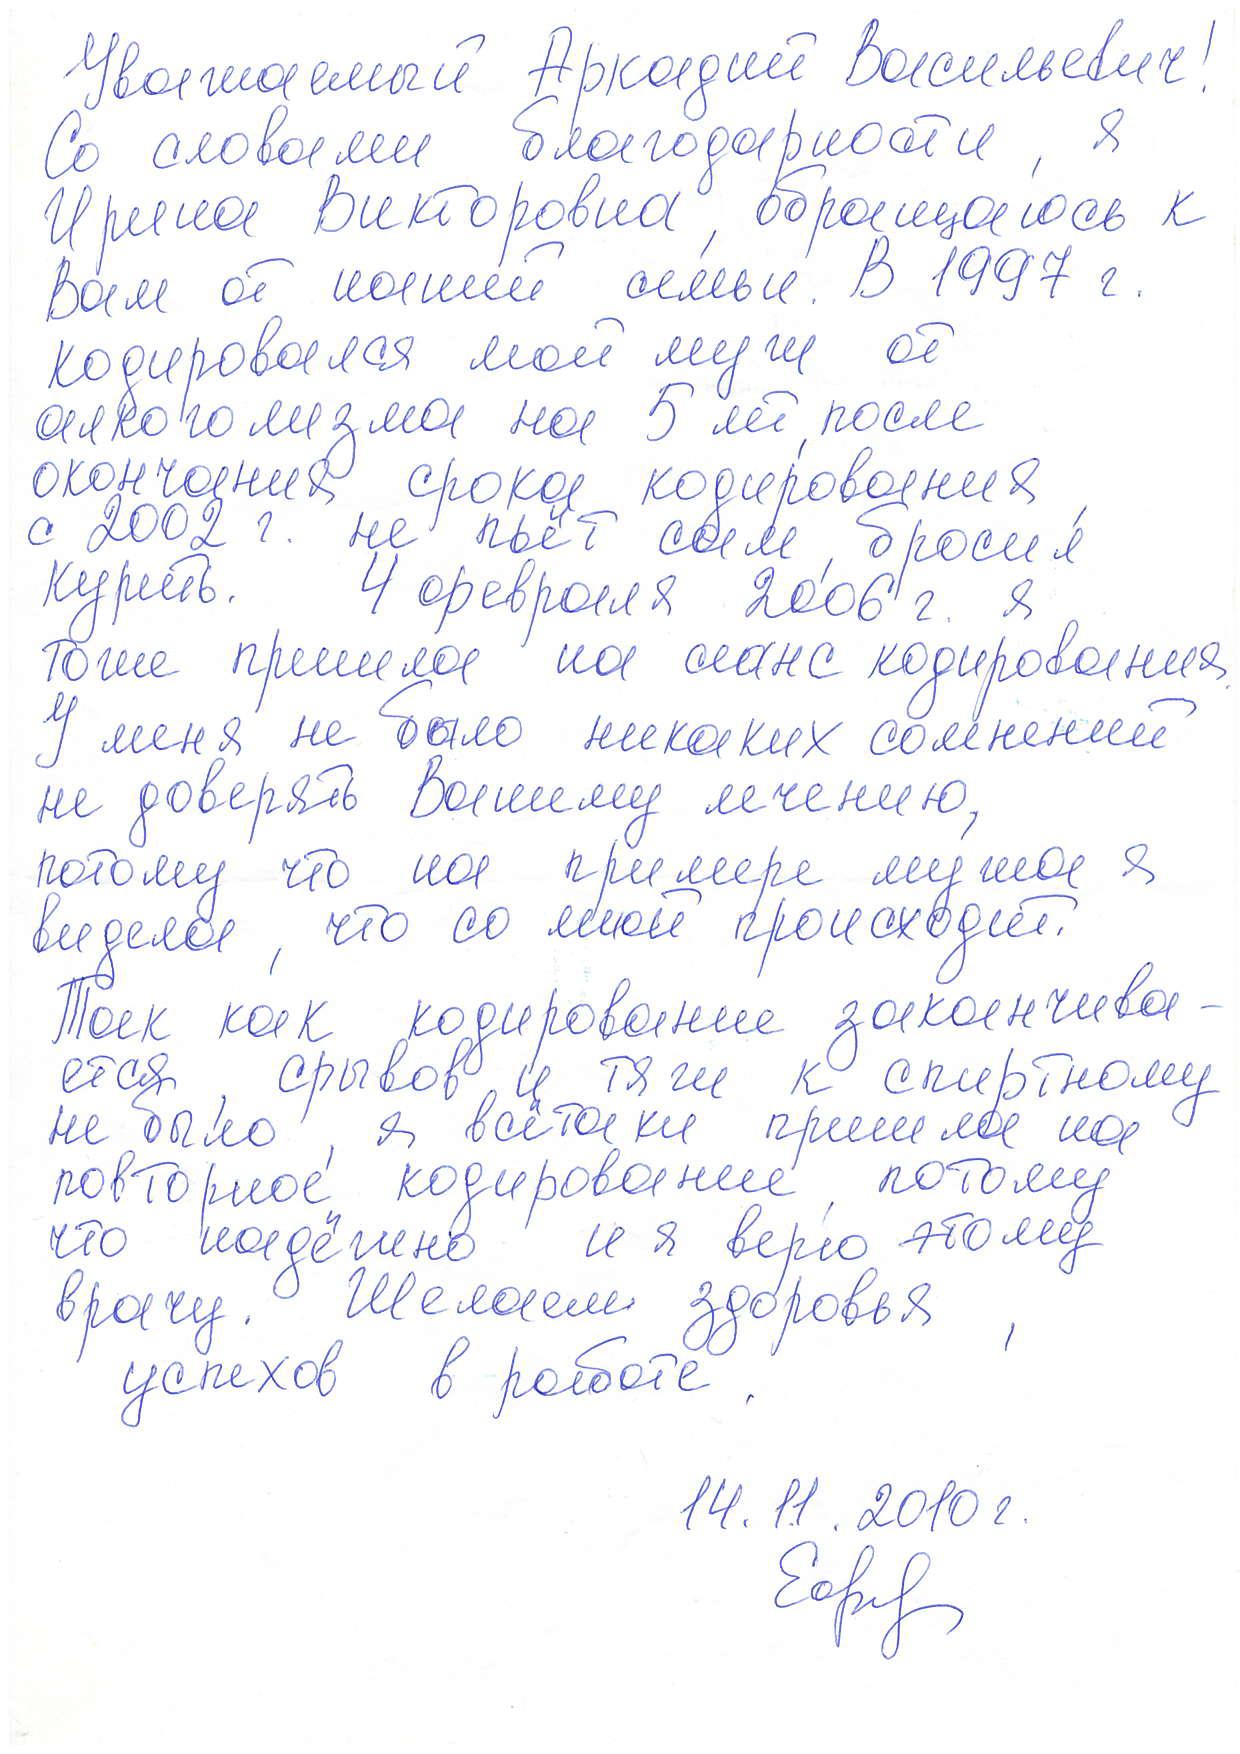 Уважаемый Аркадий Васильевич!
Со словами благодарности, я
Ирина Викторовна, обращаюсь к
Вам от нашей семьи. В 1997 г.
кодировался мой муж от
алкоголизма на 5 лет, после
окончания срока кодирования,
с 2002 г. не пьёт сам, бросил
курить. 4 февраля 2006 г. я
тоже пришла на сеанс кодирования.
У меня не было никаких сомнений
не доверять Вашему лечению,
потому что на примере мужа я
видела, что со мной происходит.
Так как кодирование заканчива-
ется, срывов и тяги к спиртному
не было, я всётаки пришла на
повторное кодирование, потому
что надёжно и я верю этому
врачу. Желаем здоровья,
успехов в работе.
14.11.2010 г.